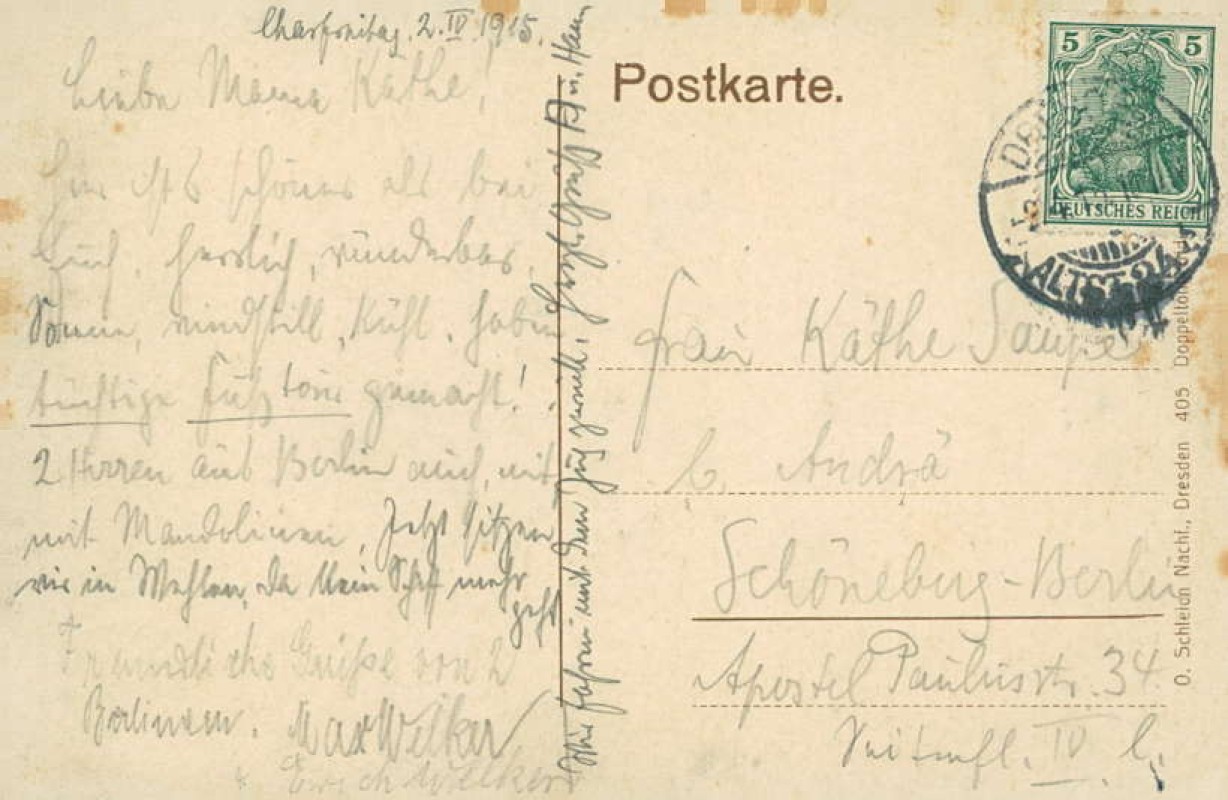 Charfreitag, 2. IV. 1915.
Liebe Mama Käthe!
Hier ists schöner als bei
Euch, herrlich, wunderbar,
Sonne, windstill, kühl, haben
tüchtige Fußtour gemacht!
2 Herren aus Berlin auch mit
mit Mandolinen, Jetzt sitzen
wir in Wehlen, da kein Schiff mehr
geht
Freundliche Grüße von 2
Berlinern. Max Welker
Erich Welker
Wir fahren mit dem Zug zurück. Herzlichst
Postkarte.
5 5
DEUTSCHES REICH
ALTST. 24
Frau Käthe
b. Andrä
Schöneberg-Berlin
Apostel Paulusstr. 34
IV l.
O. Schleich Nachf., Dresden 405